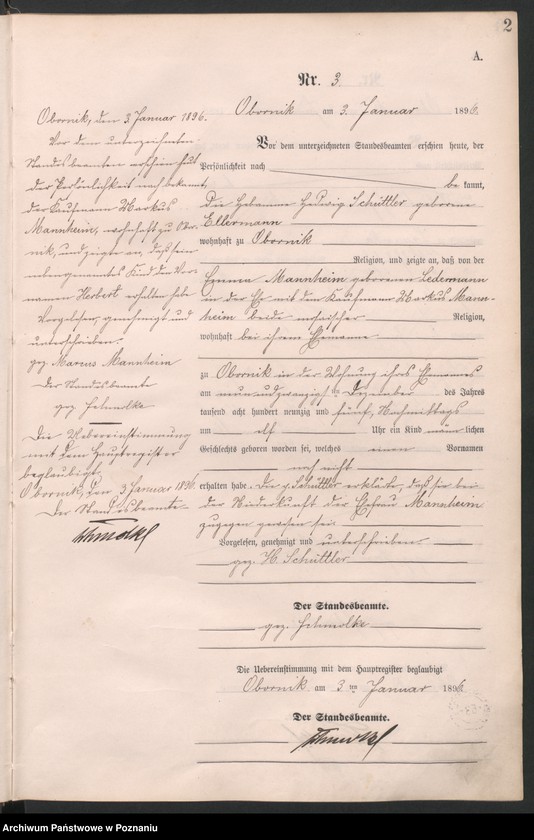 2
A.
Nr. 3
Obornik, den 3. Januar 1896.
Vor dem unterzeichneten
Standesbeamten erschien heut
der Persönlichkeit nach bekannt,
der Kaufmann Markus
Mannheim, wohnhaft zu Obor-
nik, und zeigte an, daß sein
nebengenanntes Kind den Vor-
namen Herbert erhalten habe
Vorgelesen, genehmigt und
unterschrieben.
gez. Marcus Mannheim
Der Standesbeamte
gez. Schmolke
Die Uebereinstimmung
mit dem Hauptregister
beglaubigt
Obornik, den 3 Januar 1896.
Der Standesbeamte
Schmolke
Obornik am 3. Januar 1896.
Vor dem unterzeichneten Standesbeamten erschien heute, der
Persönlichkeit nach
be kannt,
die Hebamme Hedwig Schüttler geborene
Ellermann
wohnhaft zu Obornik
Religion, und zeigte an, daß von der
Mannheim geborenen Ledermann
in der Ehe mit dem Kaufmann Markus Mann-
heim beide mosaischer Religion,
wohnhaft bei ihrem Ehemanne
zu Obornik in der Wohnung ihres Ehemannes
am neunundzwanzigsten Dezember des Jahres
tausend acht hundert neunzig und fünf, Nachmittags
um elf Uhr ein Kind männlichen
Geschlechts geboren worden sei, welches einen Vornamen
noch nicht
erhalten habe. Die p. Schüttler erklärte, daß sie bei
der Niederkunft der Ehefrau Mannheim
zugegen gewesen sei.
Vorgelesen, genehmigt und unterschrieben
gez. H. Schüttler
Der Standesbeamte.
gez. Schmolke
Die Uebereinstimmung mit dem Hauptregister beglaubigt
Obornik am 3ten Januar 1896
Der Standesbeamte.
Schmolke
Archiwum Państwowe w Poznaniu